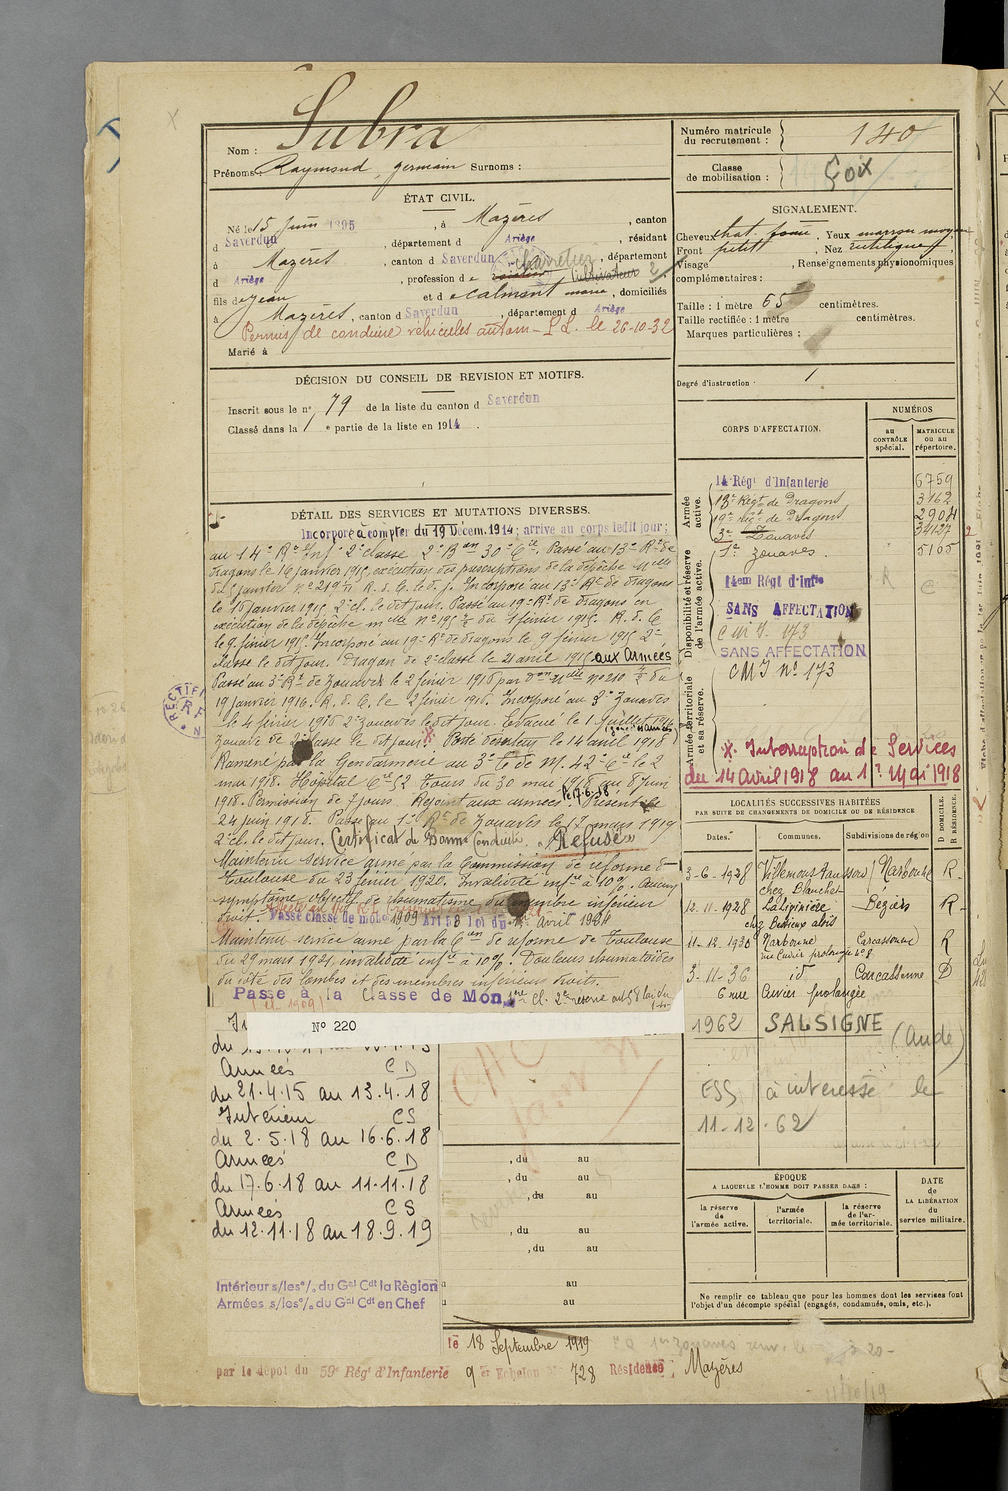 Nom : Subra
Prénoms : Raymond, Germain Surnoms :
ÉTAT CIVIL.
Né le 15 Juin 1895, à Mazères, canton
d Saverdun, département d Ariège, résidant
à Mazères, canton d Saverdun, département
d Ariège, profession de cultivateur
fils de Jean et de Calmont Marie, domiciliés
à Mazères, canton d Saverdun, département d Ariège
Permis de conduire véhicules autom - P.L. le 26-10-32
Marié à
DÉCISION DU CONSEIL DE REVISION ET MOTIFS.
Inscrit sous le n° 79 de la liste du canton d Saverdun
Classé dans la 1 e partie de la liste en 1914.
DÉTAIL DES SERVICES ET MUTATIONS DIVERSES.
Incorporé à compter du 19 Décem. 1914; arrivé au corps ledit jour;
au 14e Rt Inf. 2e classe 2e Bon 30e Cie. Passé au 13e Rt de
dragons le 16 janvier 1915, exécution des prescriptions de la dépêche mlle
du 5 janvier n° 2219 R. d. C. le d. j. Incorporé au 13e Rt de dragons
le 16 janvier 1915. 2e cl. le dit jour. Passé au 19e Rt de dragons en
exécution de la dépêche mlle N° 195 du 1 février 1915. R. d. C
le 9 février 1915. Incorporé au 19e Rt de dragons le 9 février 1915 2e
classe le dit jour. Dragon de 2e classe le 21 avril 1915 aux Armées
Passé au 3e Rt de Zouaves le 2 février 1916 par don mlle N° 210 du
19 janvier 1916. R. d. C. le 2 février 1916. Incorporé au 3e Zouaves
le 4 février 1916 2e zouaves le dit jour. Evacué le 1 juillet 1916
Zouave de 2e classe le dit jour. * Porté déserteur le 14 avril 1918
Ramené par la Gendarmerie au 3e de M. 42e Cie le 2
mai 1918. Hôpital Cre 52 Tours du 30 mai 1918 au 8 Juin
1918. Permission de 7 jours. Rejoint aux armées le 17-6-18. Présent le
24 juin 1918. Passé au 1er Rt de Zouaves le 17 mars 1919
2e cl. le dit jour. Certificat de Bonne Conduite. "Refusé"
Maintenu service armé par la Commission de réforme de
Toulouse du 23 février 1920. Invalidité infre à 10%. Aucun
symptôme objectif de rhumatisme du membre inférieur
droit. Passé classe de mobon 1909 Art 58 loi du 1er avril 1924
Maintenu service armé par la Con de réforme de Toulouse
du 29 mars 1921, invalidité infre à 10%. Douleurs rhumatoïdes
du côté des lombes et des membres inférieurs droits.
Passé à la Classe de Mon 1re cl. 2e réserve art 58 loi du
N° 220
Armées CD
du 21.4.15 au 13.4.18
Intérieur CS
du 2.5.18 au 16.6.18
Armées CD
du 17.6.18 au 11.11.18
Armées CS
du 12.11.18 au 18.9.19
Intérieur s/les o/ du Gal Cdt la Région
Armées s/les o/ du Gal Cdt en Chef
, du au
, du au
, du au
, du au
, du au
au
au
le 18 Septembre 1919
par le dépôt du 59e Régt d'Infanterie 9 er Echelon N° 728 Résidence : Mazères
Numéro matricule du recrutement : 140
Classe de mobilisation : Foix
SIGNALEMENT.
Cheveux chat. foncé, Yeux marron moyen
Front petit, Nez rectiligne
Visage , Renseignements physionomiques
complémentaires :
Taille : 1 mètre 65 centimètres.
Taille rectifiée : 1 mètre centimètres.
Marques particulières :
Degré d'instruction : 1
CORPS D'AFFECTATION.
NUMÉROS
au CONTRÔLE spécial.
MATRICULE ou au répertoire.
Armée active.
14e Régt d'Infanterie 6759
13e Régt de Dragons 3162
19e Régt de Dragons 2904
3e Zouaves 34127
1er Zouaves. 5105
Disponibilité et réserve de l'armée active.
14em Régt d'Infie
SANS AFFECTATION
C M I. 173
SANS AFFECTATION
CMI N° 173
Armée territoriale et sa réserve.
* Interruption de Services
du 14 Avril 1918 au 1er Mai 1918
LOCALITÉS SUCCESSIVES HABITÉES
PAR SUITE DE CHANGEMENTS DE DOMICILE OU DE RÉSIDENCE
Dates. Communes. Subdivisions de région D DOMICILE. R RÉSIDENCE.
3-6-1928 Villemoustaussou Narbonne R.
chez Blanchet
12.11-1928 Béziers R
11-12-1930 Narbonne Carcassonne R
rue Cuvier prolongée n° 8
3-11-36 id Carcassonne D
6 rue Cuvier prolongée
1962 SALSIGNE (Aude)
ESS à intéressé le
11-12-62
ÉPOQUE
A LAQUELLE L'HOMME DOIT PASSER DANS :
la réserve de l'armée active.
l'armée territoriale.
la réserve de l'armée territoriale.
DATE de LA LIBÉRATION du service militaire.
Ne remplir ce tableau que pour les hommes dont les services font
l'objet d'un décompte spécial (engagés, condamnés, omis, etc.).